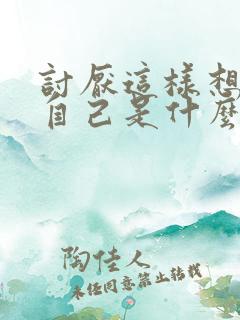 討厭這樣想
自己是什麼
陶佳人
未經同意禁止轉載